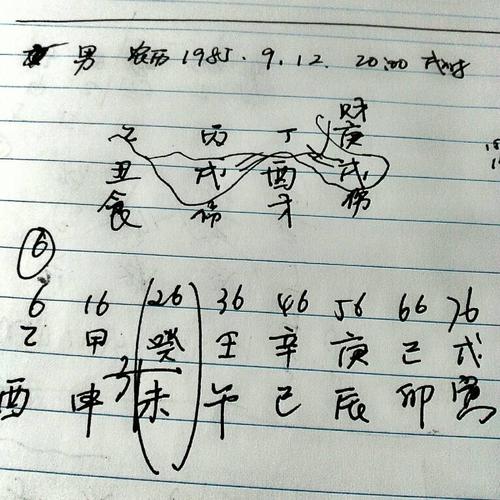 男 农历1985.9.12. 20:00 戌时
财
乙 丙 丁 庚
丑 戌 酉 戌
食 伤 才 伤
6
6 16 26 36 46 56 66 76
乙 甲 癸 壬 辛 庚 己 戊
酉 申 未 午 巳 辰 卯 寅